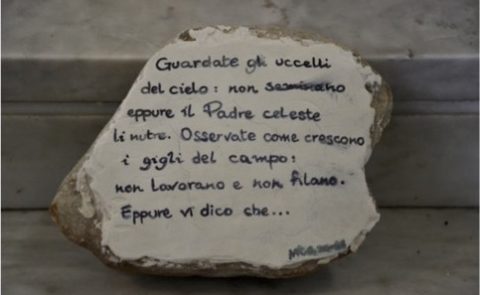 Guardate gli uccelli
del cielo: non seminano
eppure il Padre celeste
li nutre. Osservate come crescono
i gigli del campo:
non lavorano e non filano.
Eppure vi dico che...